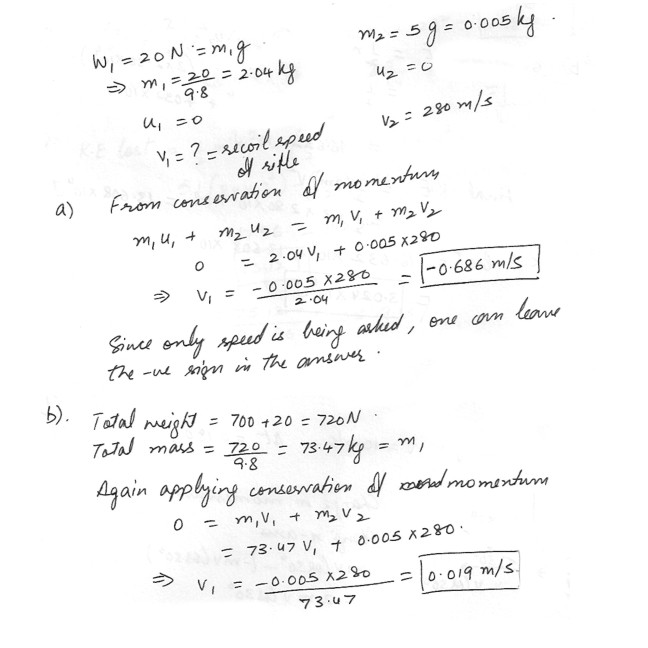 W₁ = 20 N = m₁g
⇒ m₁ = 20/9.8 = 2.04 kg
u₁ = 0
v₁ = ? = recoil speed
of rifle
m₂ = 5 g = 0.005 kg.
u₂ = 0
v₂ = 280 m/s
a) From conservation of momentum
m₁u₁ + m₂u₂ = m₁v₁ + m₂v₂
0 = 2.04 v₁ + 0.005 x 280
⇒ v₁ = -0.005 x 280 / 2.04 = -0.686 m/s
Since only speed is being asked, one can leave
the -ve sign in the answer.
b). Total weight = 700 + 20 = 720 N.
Total mass = 720/9.8 = 73.47 kg = m₁
Again applying conservation of momentum
0 = m₁v₁ + m₂v₂
= 73.47 v₁ + 0.005 x 280.
⇒ v₁ = -0.005 x 280 / 73.47 = 0.019 m/s.